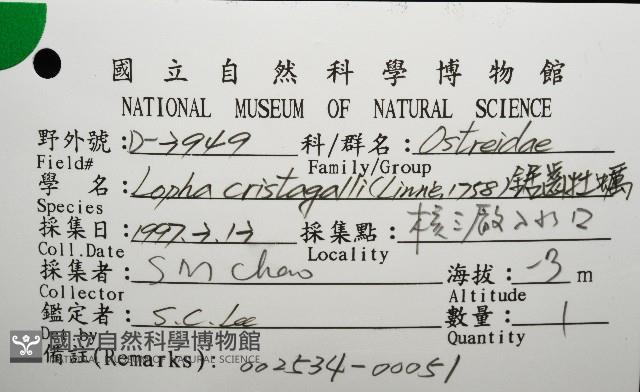 國立自然科學博物館
NATIONAL MUSEUM OF NATURAL SCIENCE
野外號:D-->949 科/群名:Ostreidae
Field# Family/Group
學 名:Lopha cristagalli (Linné, 1758) 鋸齒牡蠣
Species
採集日:1997.>.1> 採集點:核三廠入水口
Coll.Date Locality
採集者:S M Chao 海拔:-3 m
Collector Altitude
鑑定者:S.C. Lee 數量:1
Det by Quantity
國立自然科學博物館
NATIONAL MUSEUM OF NATURAL SCIENCE
備註(Remarks): 002534-00051